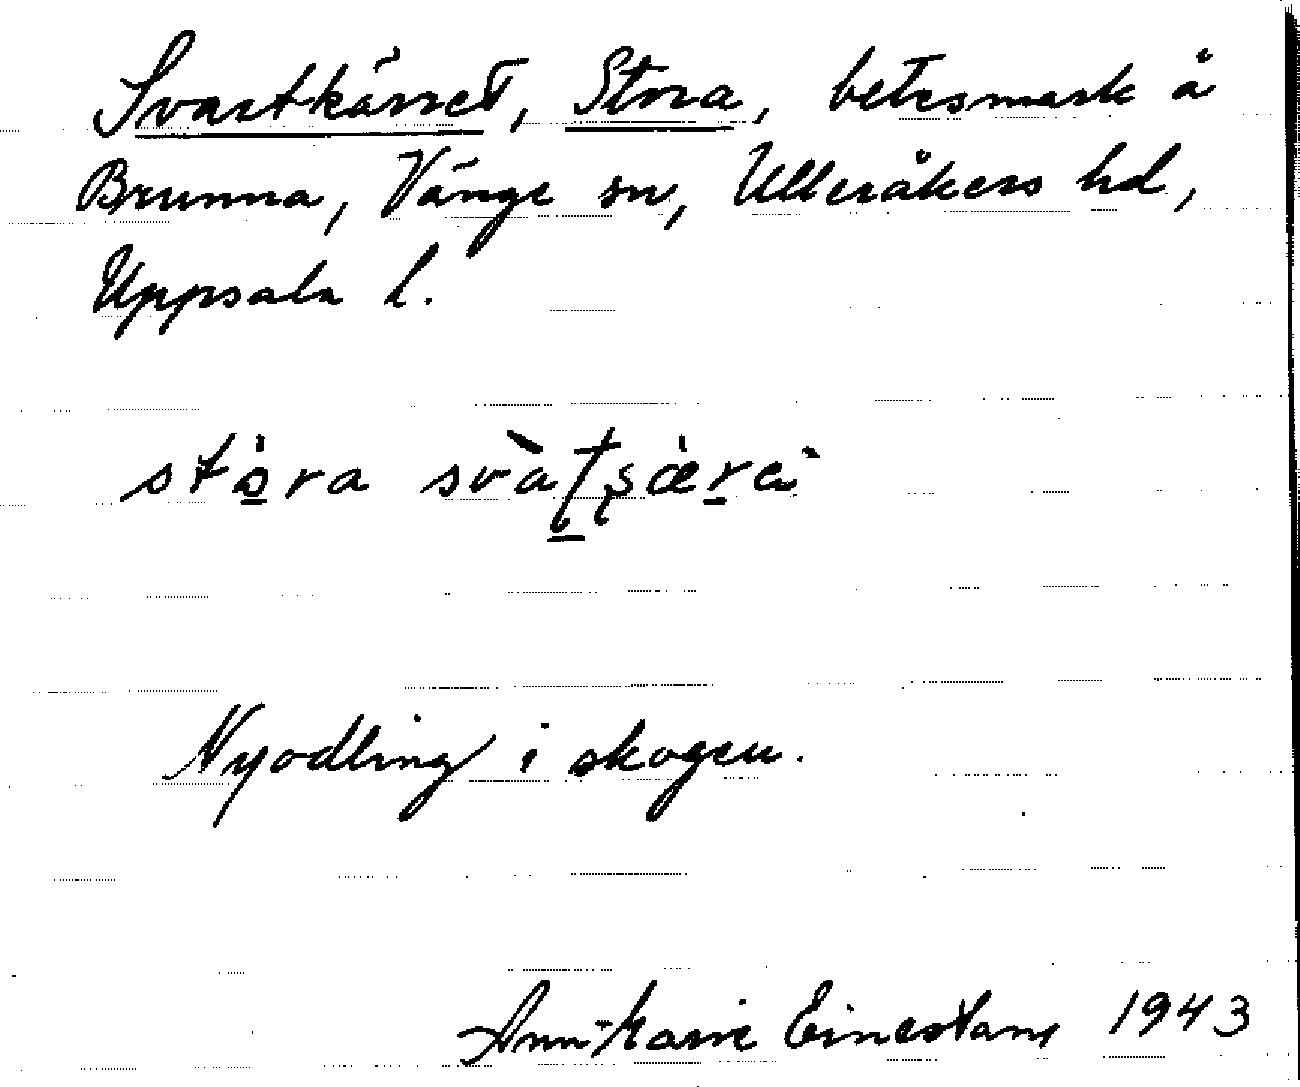 Svartkärret, Stora, betesmark å
Brunna, Vänge sn, Ulleråkers hd,
Uppsala l.
stora
Nyodling i skogen.
Ann-Marie Einestam 1943